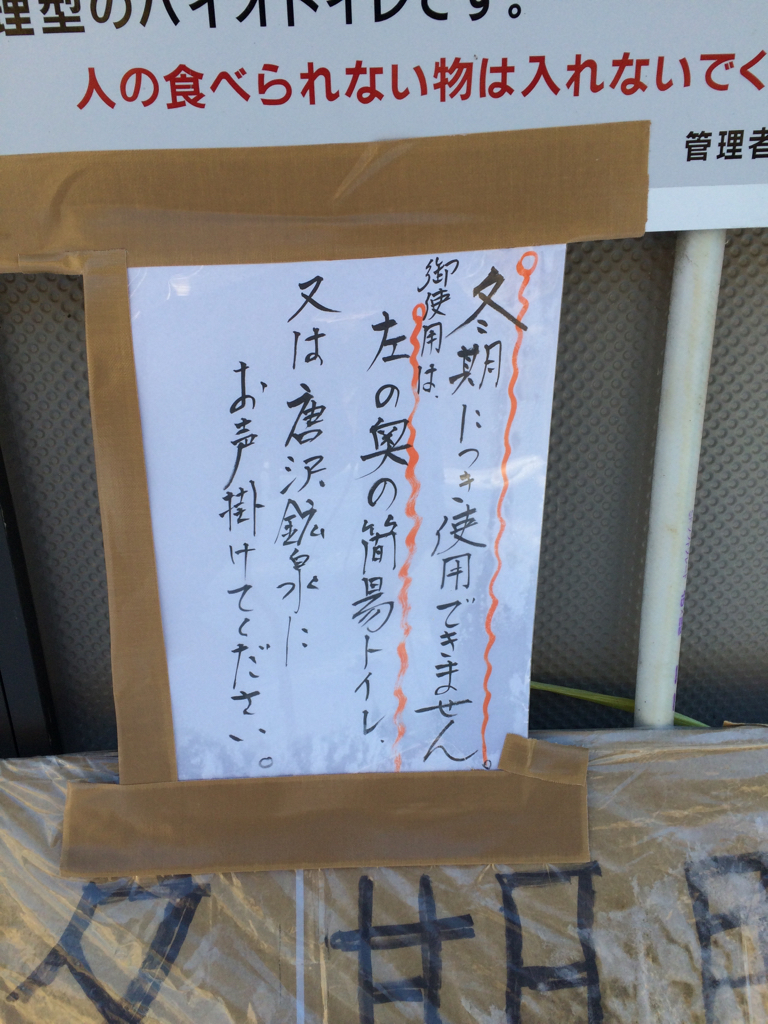 理型のバイオトイレです。
人の食べられない物は入れないでく
管理者
冬期につき使用できません。
御使用は、
左の奥の簡易トイレ、
又は唐沢鉱泉に
お声掛けてください。
冬期